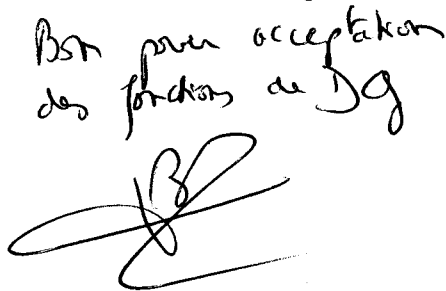 Bon pour acceptation
des fonctions de DG